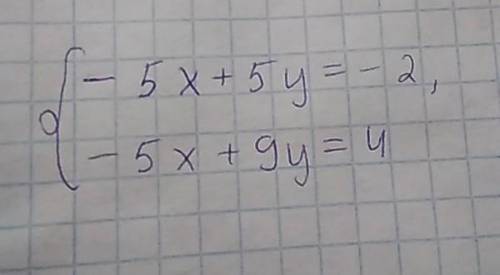 { - 5x + 5y = - 2,
- 5x + 9y = 4